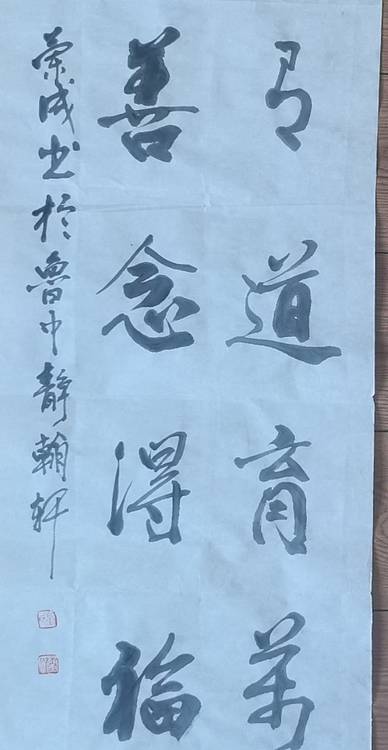 有道育万
善念得福
荣成书于鲁中静翰轩